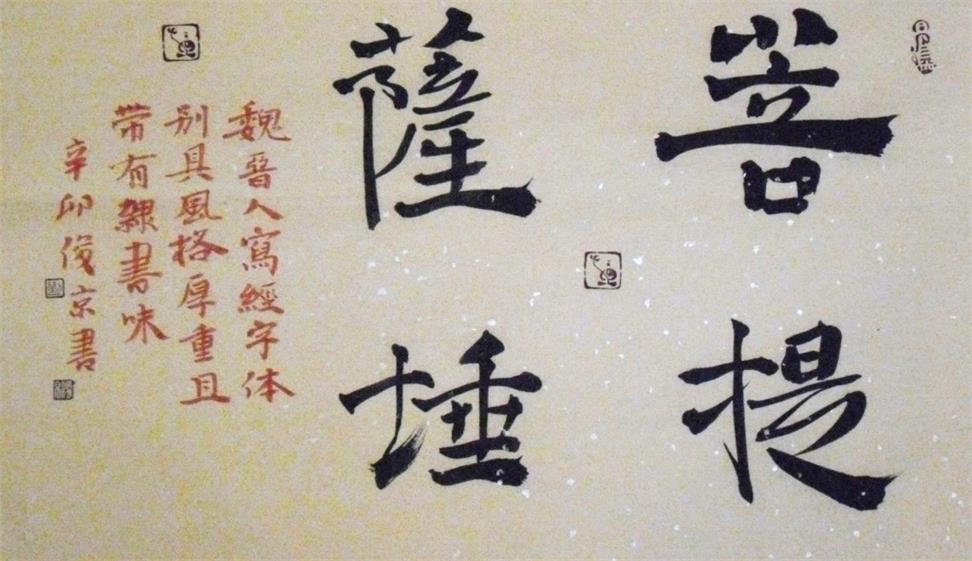 菩提
薩埵
魏晉人寫經字体
别具風格厚重且
带有隸書味
辛卯俊京書